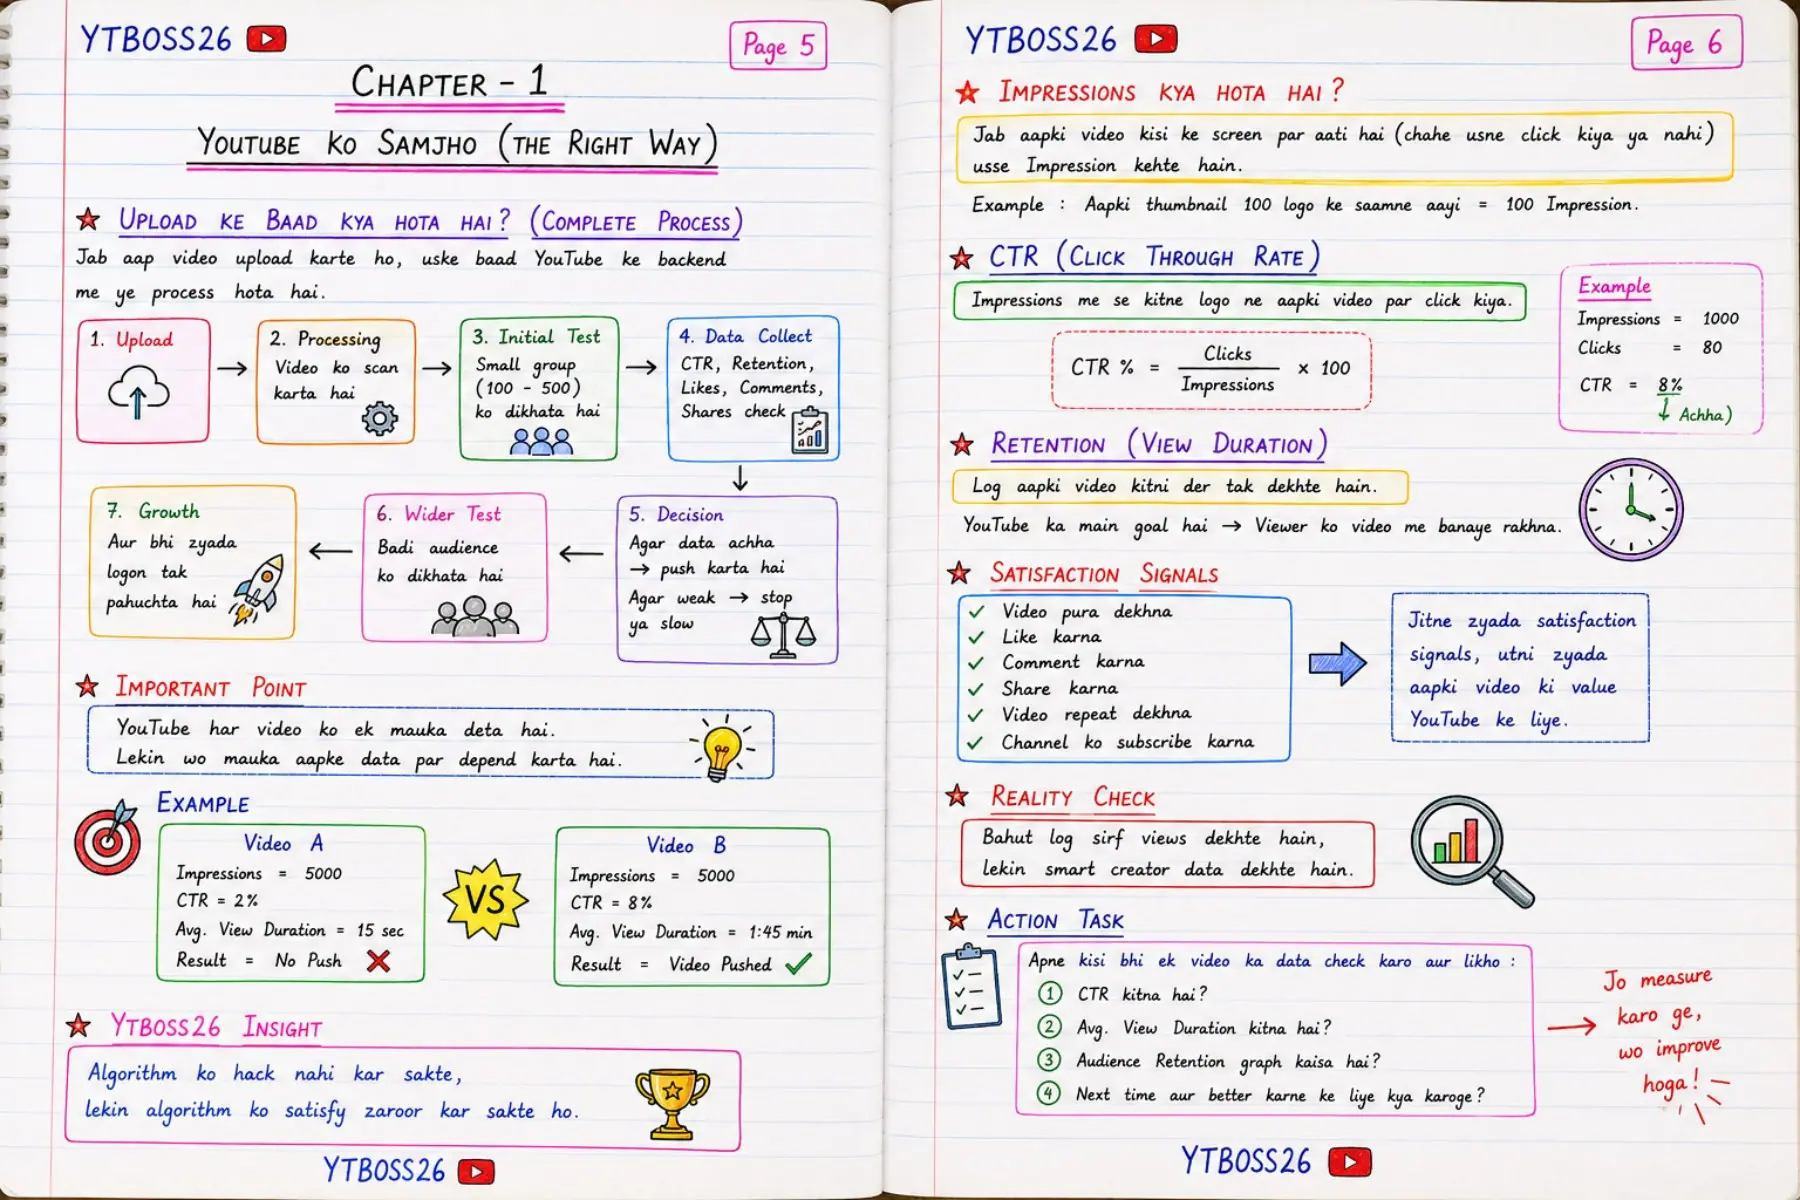 YTBOSS26
Page 5
CHAPTER - 1
YOUTUBE KO SAMJHO (THE RIGHT WAY)
UPLOAD KE BAAD KYA HOTA HAI? (COMPLETE PROCESS)
Jab aap video upload karte ho, uske baad YouTube ke backend
me ye process hota hai.
1. Upload
2. Processing
Video ko scan
karta hai
3. Initial Test
Small group
(100 - 500)
ko dikhata hai
4. Data Collect
CTR, Retention,
Likes, Comments,
Shares check
5. Decision
Agar data achha
→ push karta hai
Agar weak → stop
ya slow
6. Wider Test
Badi audience
ko dikhata hai
7. Growth
Aur bhi zyada
logon tak
pahuchta hai
IMPORTANT POINT
YouTube har video ko ek mauka deta hai.
Lekin wo mauka aapke data par depend karta hai.
EXAMPLE
Video A
Impressions = 5000
CTR = 2%
Avg. View Duration = 15 sec
Result = No Push
VS
Video B
Impressions = 5000
CTR = 8%
Avg. View Duration = 1:45 min
Result = Video Pushed
YTBOSS26 INSIGHT
Algorithm ko hack nahi kar sakte,
lekin algorithm ko satisfy zaroor kar sakte ho.
YTBOSS26
YTBOSS26
Page 6
IMPRESSIONS KYA HOTA HAI?
Jab aapki video kisi ke screen par aati hai (chahe usne click kiya ya nahi)
usse Impression kehte hain.
Example : Aapki thumbnail 100 logo ke saamne aayi = 100 Impression.
CTR (CLICK THROUGH RATE)
Impressions me se kitne logo ne aapki video par click kiya.
CTR % = Clicks / Impressions × 100
Example
Impressions = 1000
Clicks = 80
CTR = 8%
↓ Achha)
RETENTION (VIEW DURATION)
Log aapki video kitni der tak dekhte hain.
YouTube ka main goal hai → Viewer ko video me banaye rakhna.
SATISFACTION SIGNALS
✓ Video pura dekhna
✓ Like karna
✓ Comment karna
✓ Share karna
✓ Video repeat dekhna
✓ Channel ko subscribe karna
Jitne zyada satisfaction
signals, utni zyada
aapki video ki value
YouTube ke liye.
REALITY CHECK
Bahut log sirf views dekhte hain,
lekin smart creator data dekhte hain.
ACTION TASK
Apne kisi bhi ek video ka data check karo aur likho :
1 CTR kitna hai?
2 Avg. View Duration kitna hai?
3 Audience Retention graph kaisa hai?
4 Next time aur better karne ke liye kya karoge?
Jo measure
karo ge,
wo improve
hoga!
YTBOSS26